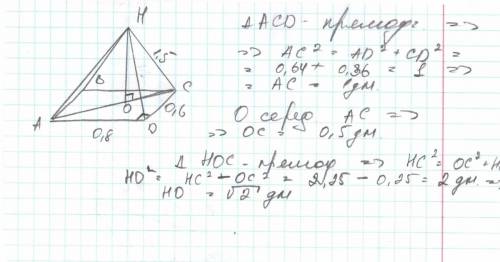 H
1,5
B
C
O
0,6
A
D
0,8
Δ ACD - прямоуг =>
=> AC² = AD² + CD² =
= 0,64 + 0,36 = 1 =>
= AC = 1дм
O серед AC =>
=> OC = 0,5 дм
Δ HOC - прямоуг => HC² = OC² + H
HO² = HC² - OC² = 2,25 - 0,25 = 2 дм =>
HO = √2 дм